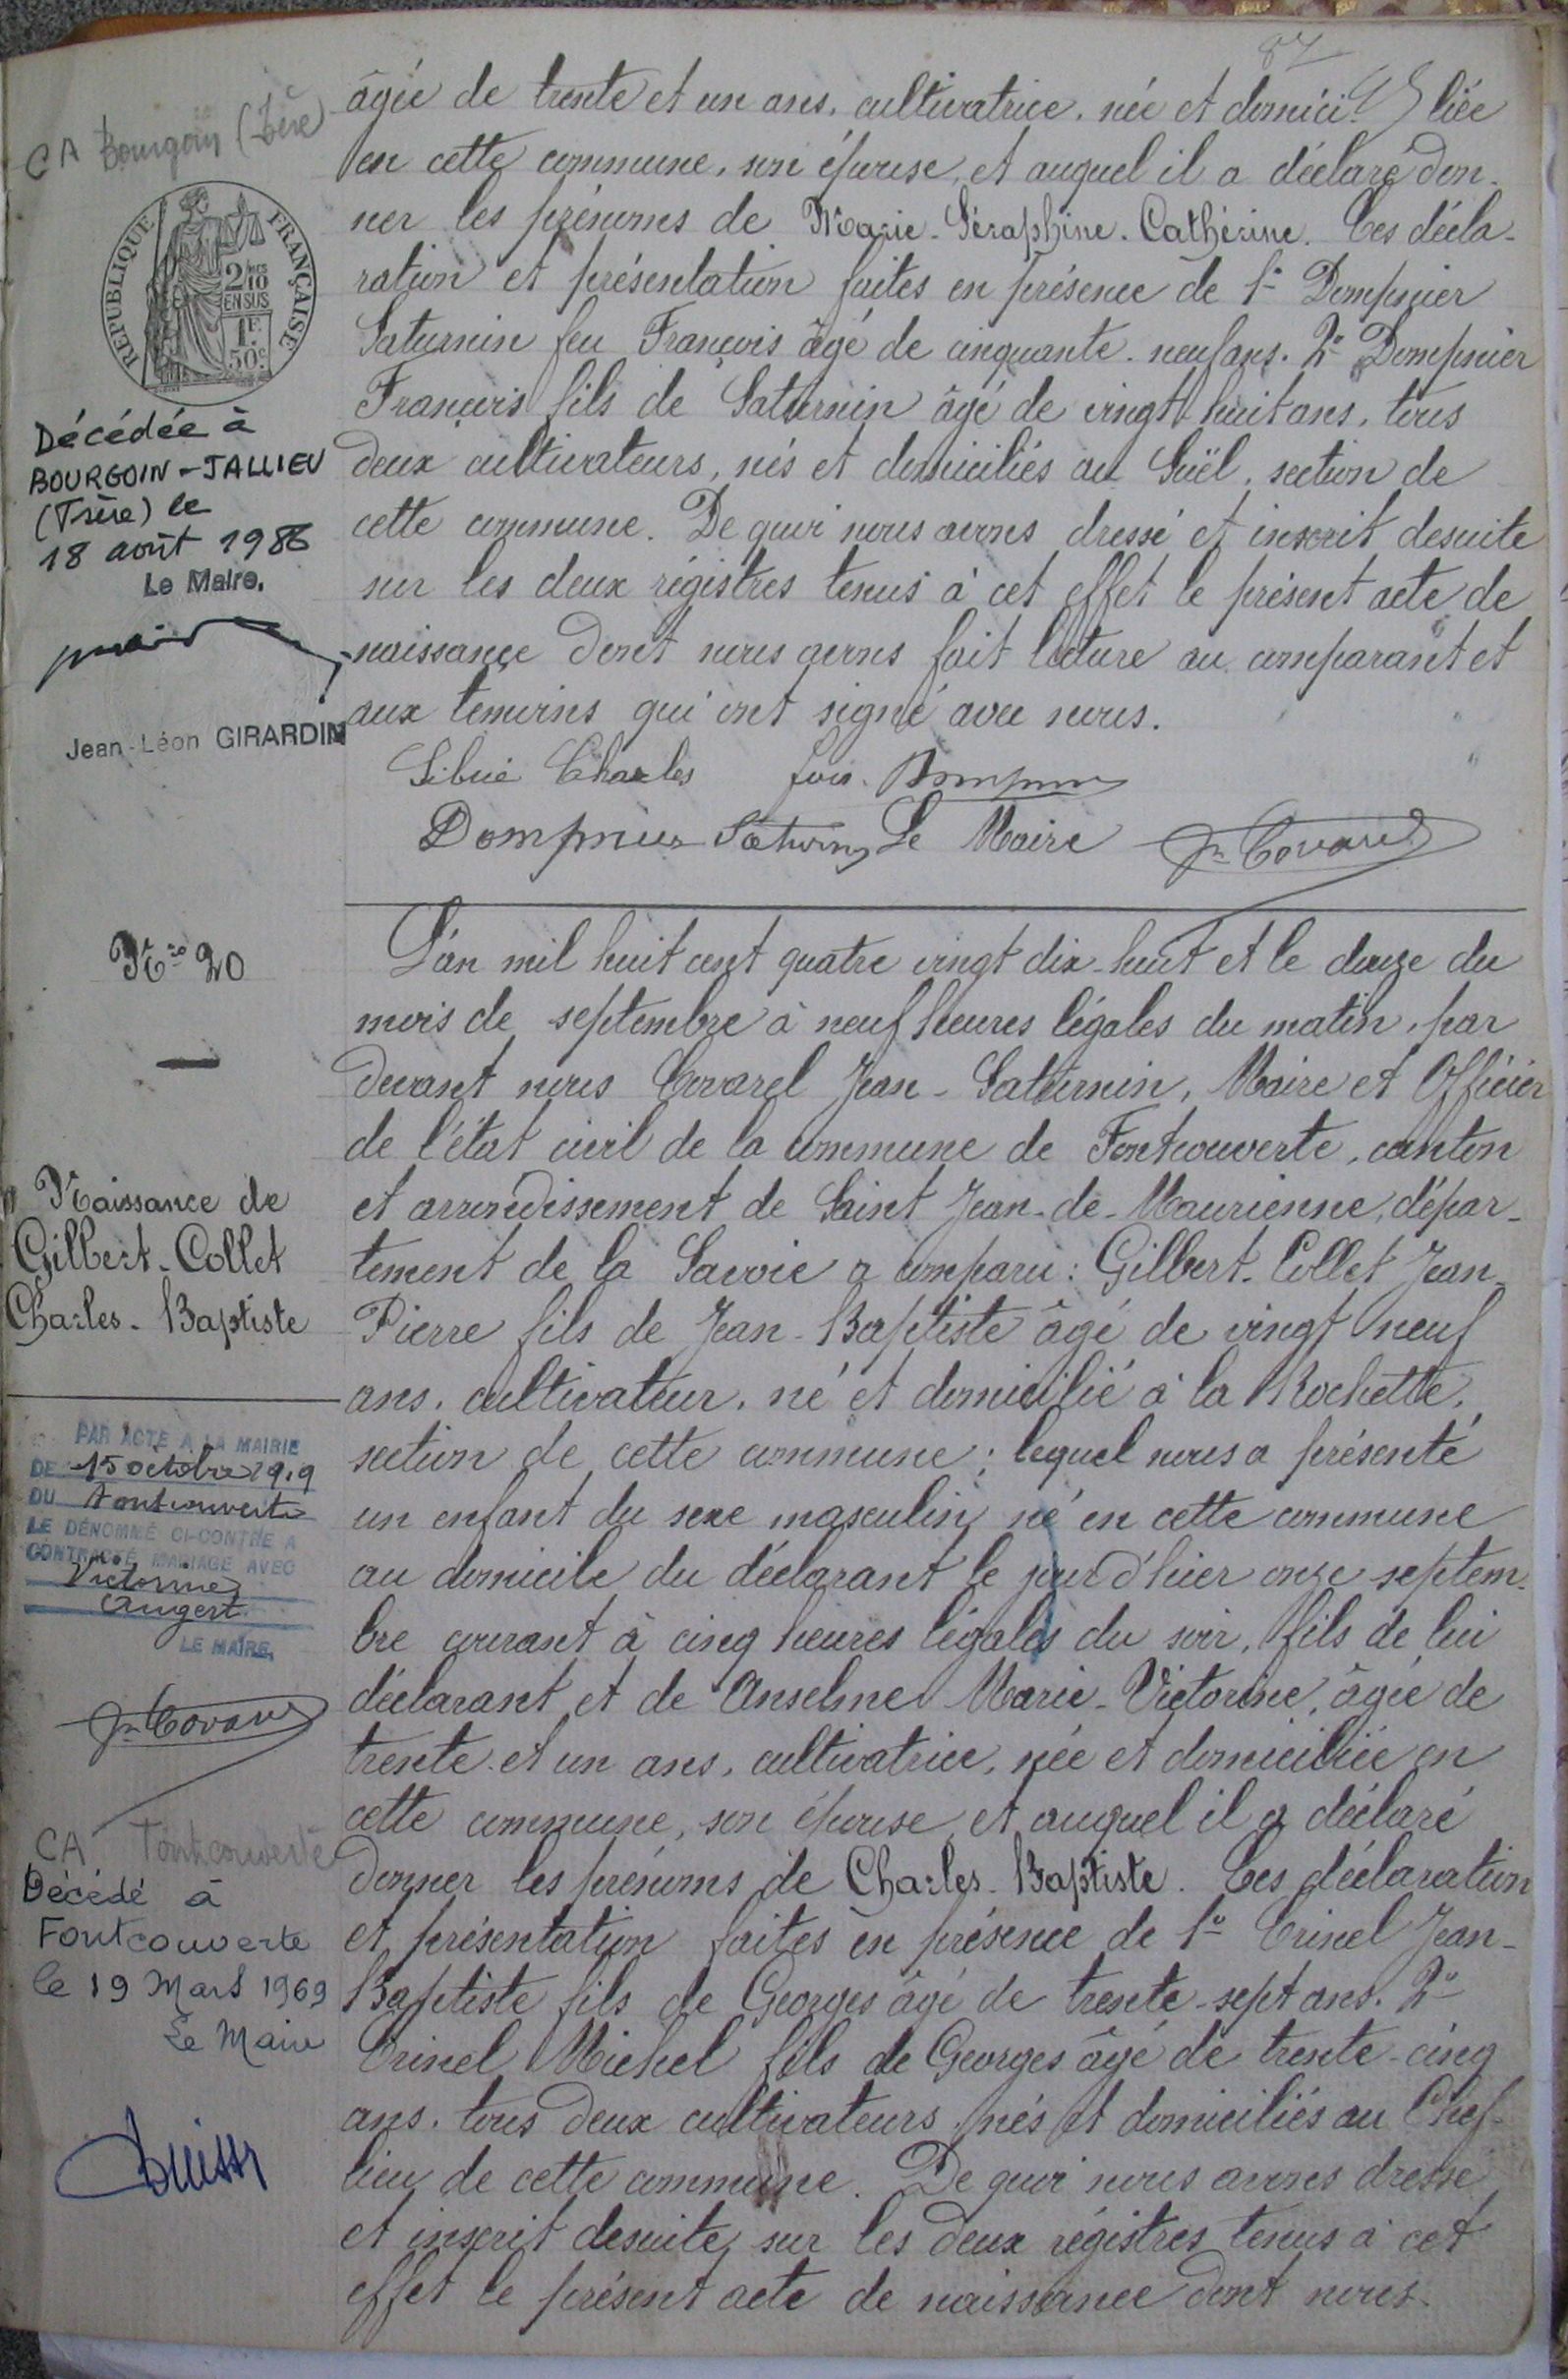 87
CA Bourgoin (Isère)
REPUBLIQUE FRANÇAISE
2/10 EN SUS
1F 50c
Décédée à
BOURGOIN-JALLIEU
(Isère) le
18 août 1986
Le Maire,
Jean-Léon GIRARDIN
âgée de trente et un ans, cultivatrice, née et domici liée
en cette commune, son épouse, et auquel il a déclaré don-
ner les prénoms de Marie-Séraphine-Cathérine. Ces décla-
ration et présentation faites en présence de 1° Dompnier
Saturnin feu François âgé de cinquante-neuf ans. 2° Dompnier
François fils de Saturnin âgé de vingt huit ans, tous
deux cultivateurs, nés et domiciliés au Suël, section de
cette commune. De quoi nous avons dressé et inscrit desuite
sur les deux régistres tenus à cet effet le présent acte de
naissance dont nous avons fait lecture au comparant et
aux temoins qui ont signé avec nous.
Sibué Charles fois. Dompnier
Dompnier Saturnin Le Maire Jn Covarel
N° 20
Naissance de
Gilbert-Collet
Charles-Baptiste
L'an mil huit cent quatre vingt dix-huit et le douze du
mois de septembre à neuf heures légales du matin, par
devant nous Covarel Jean-Saturnin, Maire et Officier
de l'état civil de la commune de Fontcouverte, canton
et arrondissement de Saint Jean-de-Maurienne, dépar-
tement de la Savoie a comparu: Gilbert-Collet Jean-
Pierre fils de Jean-Baptiste âgé de vingt neuf
ans, cultivateur, né et domicilié à la Rochette,
section de cette commune; lequel nous a présenté
un enfant du sexe masculin né en cette commune
au domicile du déclarant le jour d'hier onze septem-
bre courant à cinq heures légales du soir, fils de lui
déclarant et de Anselme Marie-Victorine, âgée de
trente et un ans, cultivatrice, née et domiciliée en
cette commune, son épouse et auquel il a déclaré
donner les prénoms de Charles-Baptiste. Ces déclaration
et présentation faites en présence de 1° Crinel Jean-
Baptiste fils de Georges âgé de trente-sept ans. 2°
Crinel Michel fils de Georges âgé de trente-cinq
ans, tous deux cultivateurs, nés et domiciliés au Chef-
lieu de cette commune. De quoi nous avons dressé
et inscrit desuite sur les deux régistres tenus à cet
effet le présent acte de naissance dont nous
PAR ACTE A LA MAIRIE
DE 15 octobre 1919
DU Fontcouverte
LE DÉNOMMÉ CI-CONTRE A
CONTRACTÉ MARIAGE AVEC
Victorine
Augert
LE MAIRE,
Jn Covarel
CA Fontcouverte
Décédé à
Fontcouverte
le 19 Mars 1969
Le Maire